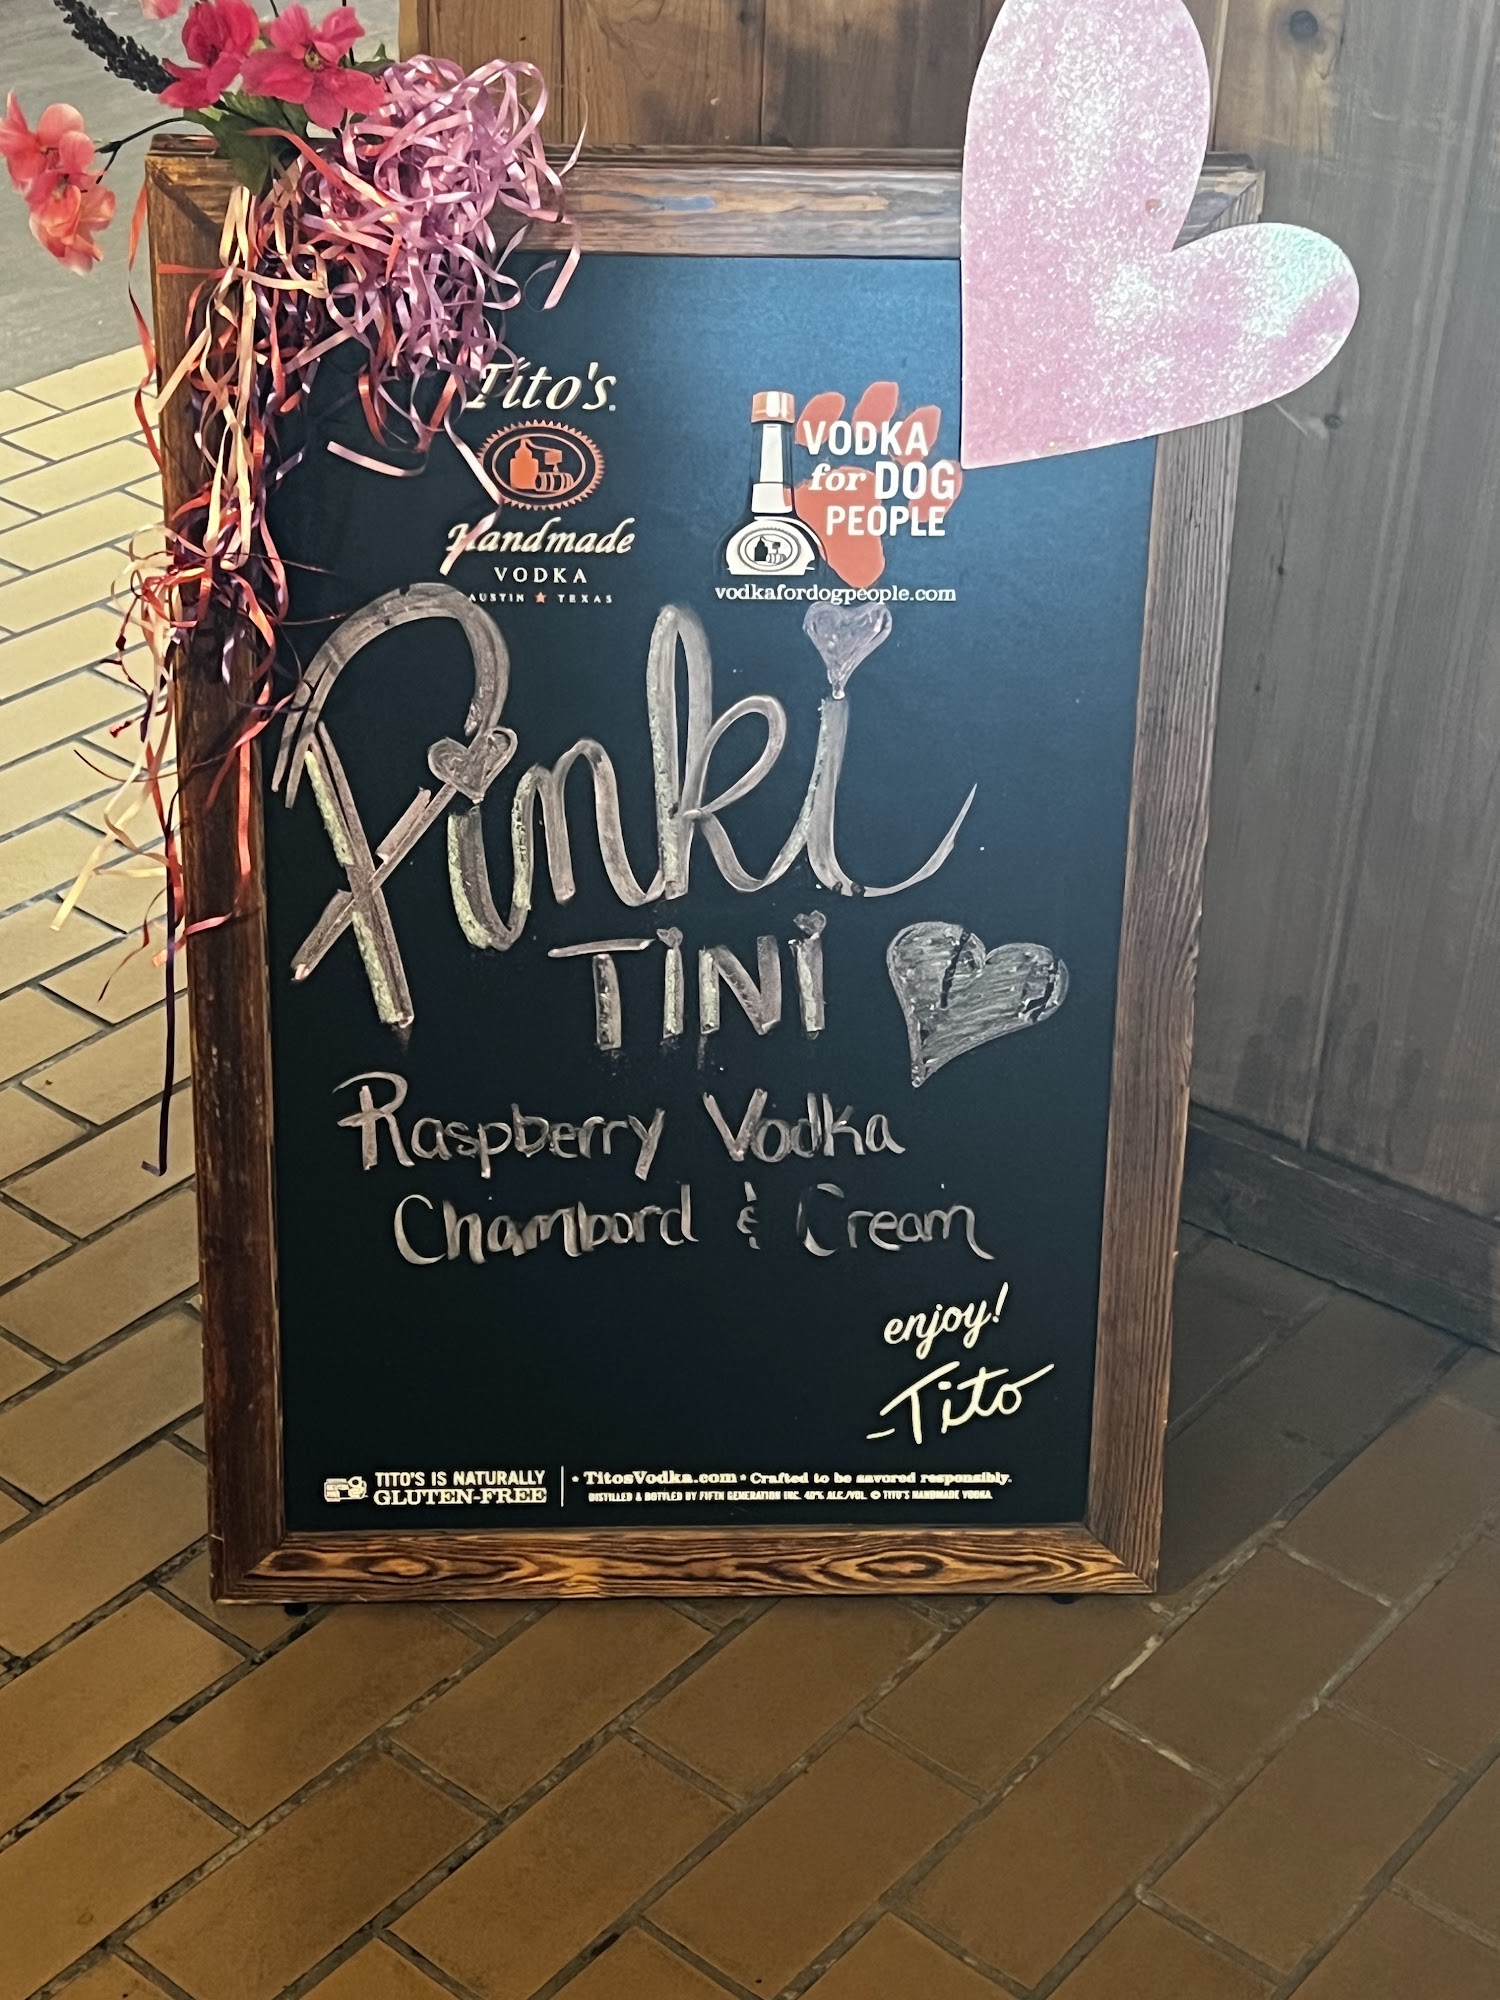 Tito's
Handmade
VODKA
AUSTIN ★ TEXAS
VODKA
for DOG
PEOPLE
vodkafordogpeople.com
Pinki
TINI
Raspberry Vodka
Chambord & Cream
enjoy!
-Tito
TITO'S IS NATURALLY
GLUTEN-FREE
• TitosVodka.com • Crafted to be savored responsibly.
DISTILLED & BOTTLED BY FIFTH GENERATION INC. 40% ALC./VOL. © TITO'S HANDMADE VODKA.